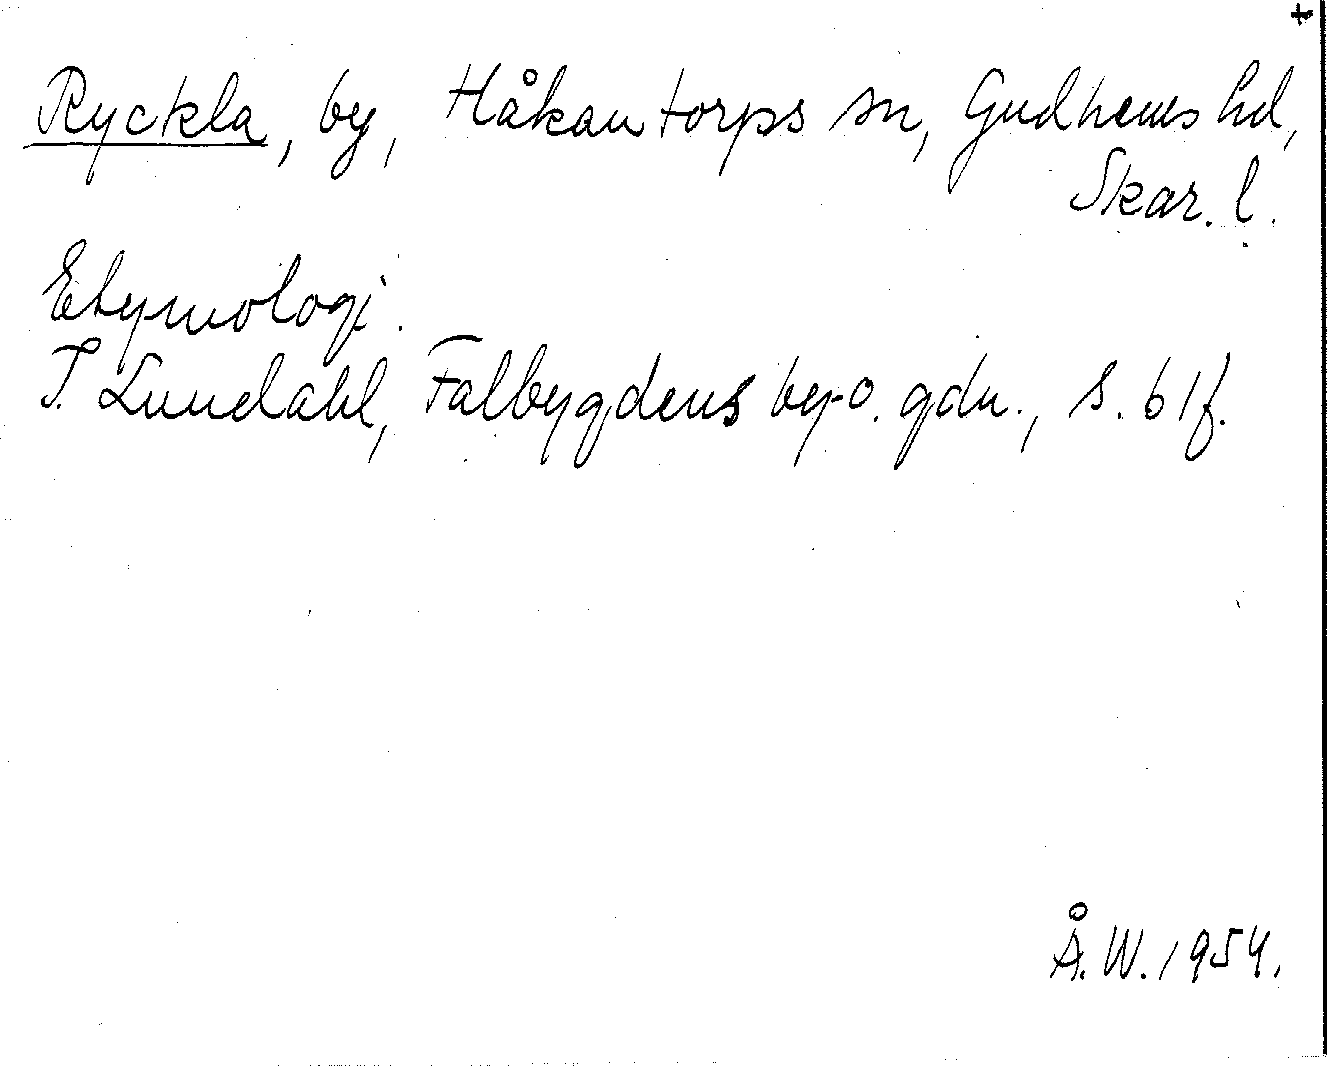 Ryckla, by, Håkantorps sn, Gudhems hd,
Skar. l.
Etymologi.
I. Lundahl, Falbygdens by-o. gdn., s. 61f.
Å. W. 1954.